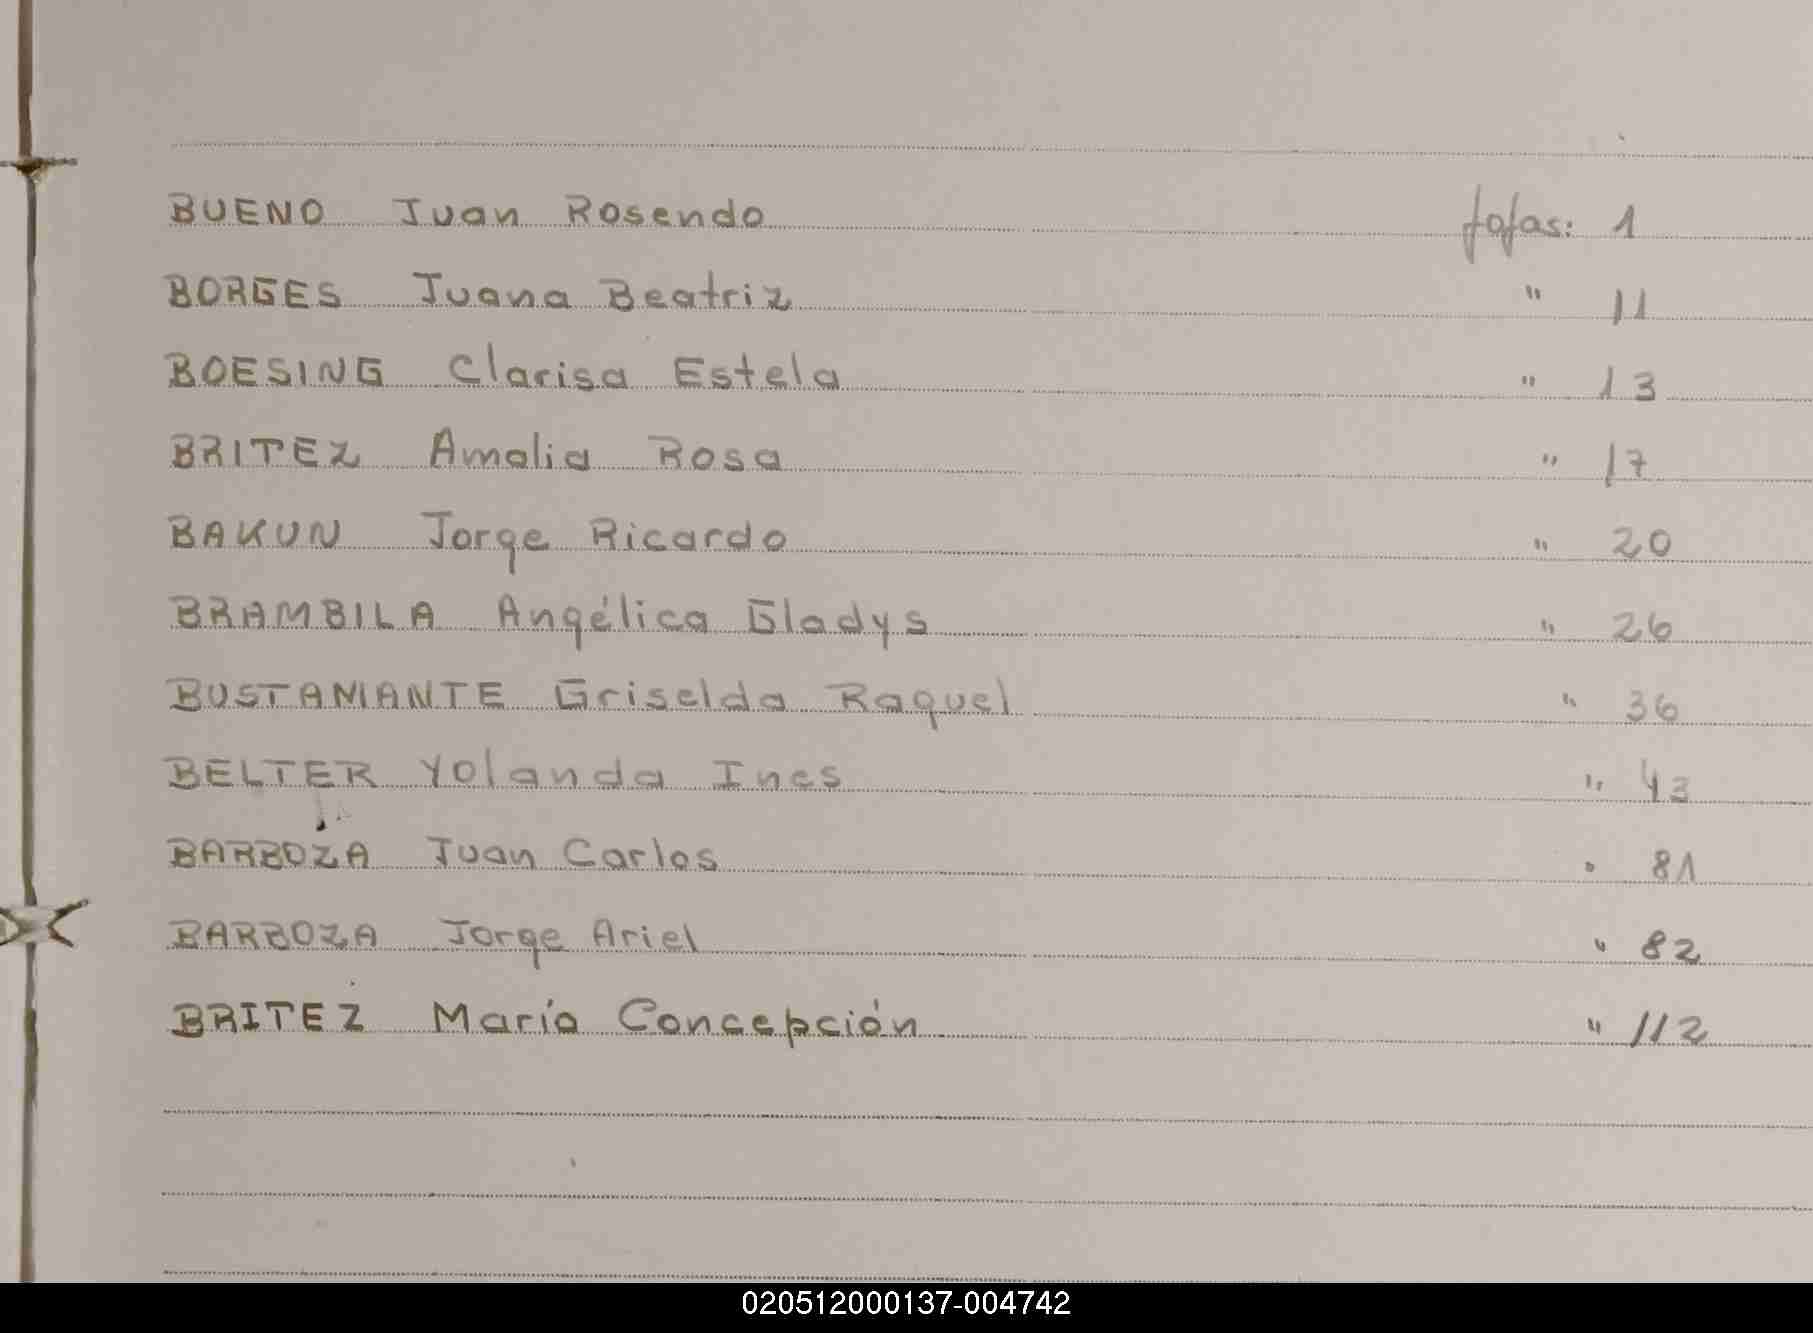 BUENO Juan Rosendo fojas: 1
BORGES Juana Beatriz " 11
BOESING Clarisa Estela " 13
BRITEZ Amalia Rosa " 17
BAKUN Jorge Ricardo " 20
BRAMBILA Angélica Gladys " 26
BUSTAMANTE Griselda Raquel " 36
BELTER Yolanda Ines " 43
BARBOZA Juan Carlos " 81
BARBOZA Jorge Ariel " 82
BRITEZ María Concepción " 112
020512000137-004742